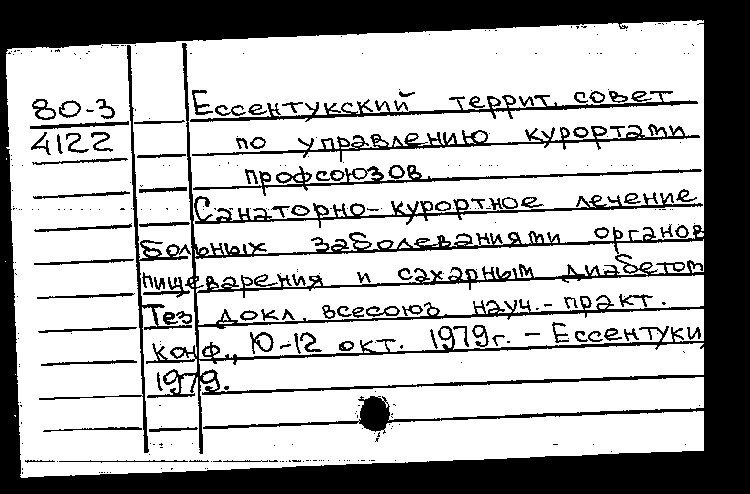 80-3
4122
Ессентукский террит. совет
по управлению курортами
профсоюзов.
Санаторно-курортное лечение
больных заболеваниями органов
пищеварения и сахарным диабетом
Тез докл. всесоюз науч.-практ.
конф., 10-12 окт. 1979г. - Ессентуки,
1979.